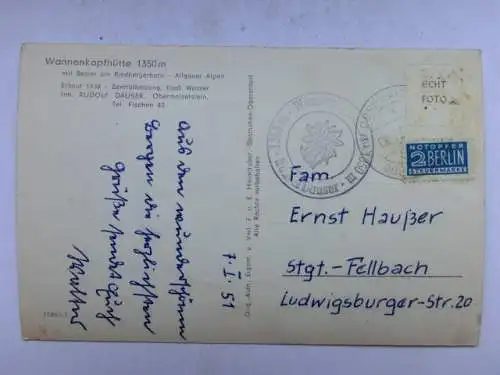 Wannenkopfhütte 1350 m
mit Besler und Riedbergerhorn - Allgäuer Alpen
Erbaut 1938 - Zentralheizung, fließ. Wasser
Inh. RUDOLF DAUSER, Obermaiselstein,
Tel. Fischen 40
ECHT
FOTO
NOTOPFER
2 BERLIN
STEUERMARKE
Fam
Ernst Haußer
Stgt.-Fellbach
Ludwigsburger-Str. 20
7. I. 51
Aus den
Bergen die herzlichsten
Grüße sendet Euch
Orig.-Aufn. Eigent. u. Verl. F. u. E. Heimhuber, Sonthofen-Oberstdorf
Alle Rechte vorbehalten